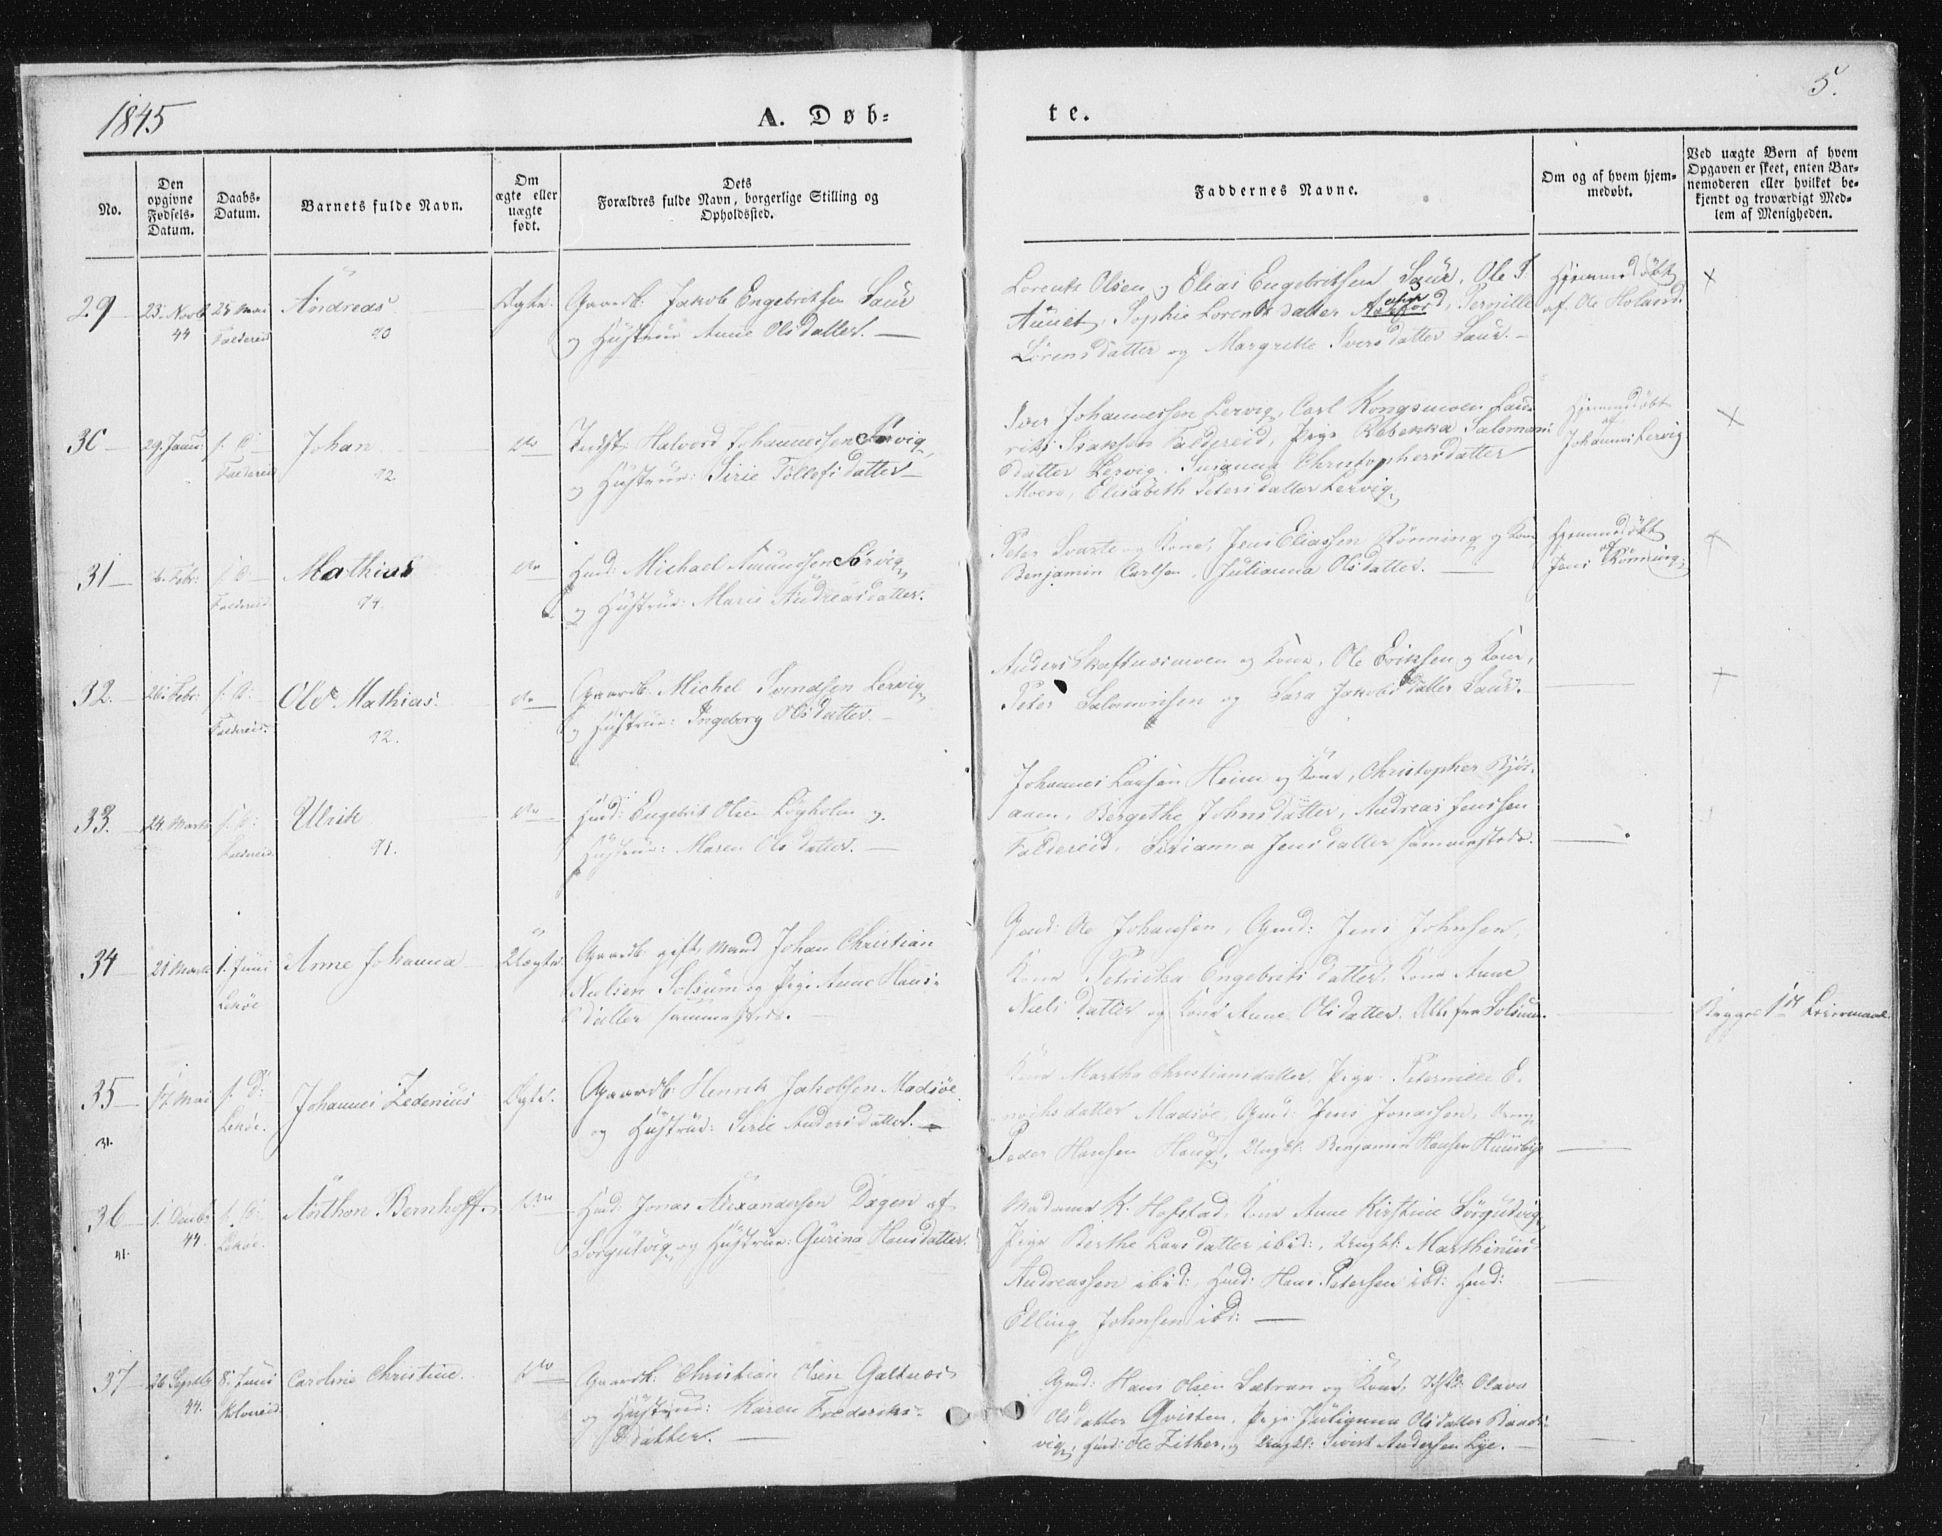 1845
A. Døb=
te.
5.
No.
Den
opgivne
Fødsels-
Datum.
Daabs-
Datum.
Barnets fulde Navn.
Om
ægte eller
uægte
født.
Dets
Forældres fulde Navn, borgerlige Stilling og
Opholdssted.
Faddernes Navne.
Om og af hvem hjem-
medøbt.
Ved uægte Børn af hvem
Opgaven er skeet, enten Bar-
nemoderen eller hvilket be-
kjendt og troværdigt Med-
lem af Menigheden.
29
23. Novb
44
25 Mai
Foldereid
Andreas
Ægte.
Gaardb: Jakob Engebretsen Saur
og Hustrue Anne Olsdatter. —
Lorents Olsen og Elias Engebretsen Saur, Ole T.
Aunet, Sophie Lorentsdatter Pernille
Lorensdatter og Margrethe Iversdatter Saur. —
Hjemmedøbt
af Ole Holand
30
29. Janu:
f: D:
Foldereid
Johan
12
do
Indst: Halvord Johannessen Sørvig
og Hustrue: Sirie Tollefsdatter —
Iver Johannessen Lervig, Carl Kongsmoen, Lau-
rits Isaksen Foldereid, Pige Rebekka Salomons
datter Lervig, Susanna Christophersdatter
Moen, Elisabeth Petersdatter Lervig
Hjemmedøbt
af
Johannes Lervig
31
6. Febr:
f: D:
Foldereid
Mathias
14.
do
Huusm: Michael Amundsen Sørvig
og Hustrue: Maria Andreasdatter.
Peter Svarte og Kone, Jens Eliassen Rønning og Kone
Benjamin Carlsen, Julianna Olsdatter. —
Hjemmedøbt
af
Jens Rønning
32.
26. Febr:
f: D:
Foldereid.
Ole Mathias.
12.
do
Gaardb: Michel Svendsen Lervig
og Hustrue: Ingeborg Olsdatter. —
Anders Skaftnesmoen og Kone, Ole Eriksen og Kone,
Peter Salomonsen og Sara Jakobsdatter Saur. —
33.
24. Marts
f: D:
Foldereid
Ulrik
11.
do
Huusm: Engebrit Olsen Løgholm og
Hustrue: Maren Olsdatter. —
Johannes Larsen Heim og Kone, Christopher Bjør-
aaen, Bergethe Johnsdatter, Andreas Jenssen
Foldereid, Sirianna Jensdatter sammesteds.
34
21 Marts
1. Juni
Lekøe
Anne Johanna
Uægte.
Gaardb: gift Mand Johan Christian
Nielsen Solsum og Pige Anne Hans-
datter sammesteds. —
Gmd: Ole Johansen, Gmd: Jens Johnsen,
Kone Petricka Engebritsdatter, Kone Anne
Nielsdatter og Kone Anne Olsdatter. Alle fra Solsum.
Begges 1st Leiermaal.
35
31.
17. Mai
f: D:
Lekøe.
Johannes Zedenius
Ægte.
Gaardb: Henrik Jakobsen Madsøe
og Hustrue: Sirie Andersdatter. —
Kone Martha Christiansdatter, Pige Peternille E-
nochsdatter Madsøe, Gmd: Jens Jonassen, Dreng
Peder Hansen Haug, Ungkl: Benjamin Hansen Huusbye
36
41.
1. Decbr
44.
f: D:
Lekøe.
Arthon Bernhoff.
do
Huusm: Jonas Alexandersen Dagen af
Sørgutvig, og Hustrue: Gurina Hansdatter.
Madame K. Hofstad, Kone Anne Kirstine Sørgutvig,
Pige Berthe Larsdatter ibid:, Ungkl: Marthinus
Andreassen ibid:, Huusm: Hans Petersen ibd: Huusm:
Elling Johnsen ibd: —
37
26 Septbr
44.
8. Juni
Kolvereid
Caroline Christine.
do
Gaardb: Christian Olsen Galtnes
og Hustrue: Karen Frederiks-
datter. —
Gmd: Hans Olsen Sætran og Kone, Olava
Olsdatter Qvisten, Pige Julianna Olsdatter Bands-
vig, Huusm: Ole Zither, og Ungkl: Sivert Andersen Lye. —